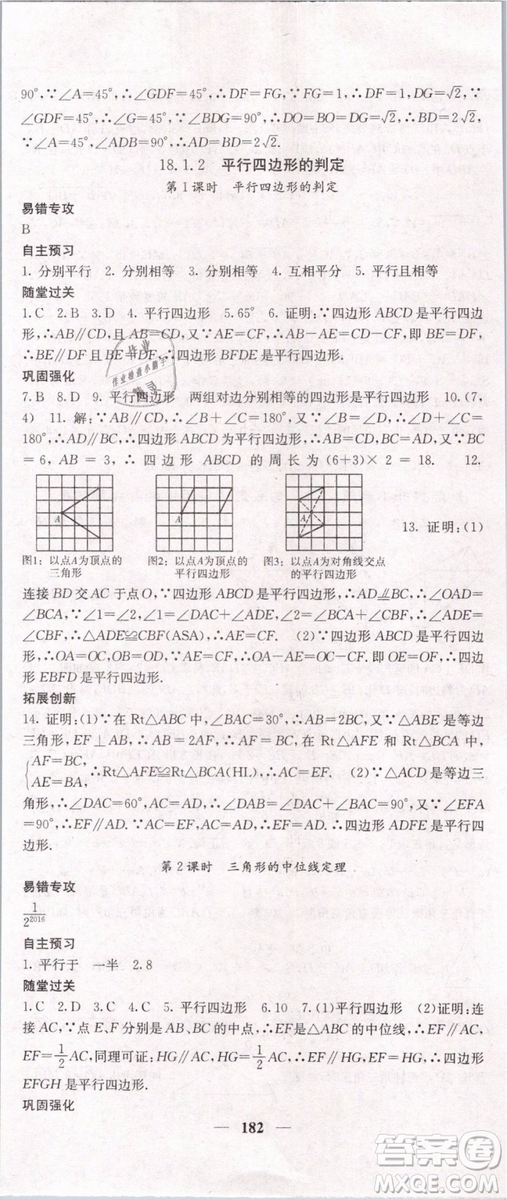 90°.∵∠A=45°,∴∠GDF=45°,∴DF=FG,∵FG=1,∴DF=1,DG=√2,
∵∠GDF=45°,∴∠G=45°,∵∠BDG=90°,∴DO=BO=DG=√2,BD=2√2,
∵∠A=45°,∠ADB=90°,∴AD=DB=2√2.
18.1.2 平行四边形的判定
第1课时 平行四边形的判定
易错专攻
B
自主预习
1. 分别平行 2. 分别相等 3. 分别相等 4. 互相平分 5. 平行且相等
随堂过关
1. C 2. B 3. D 4. 平行四边形 5. 65° 6. 证明:∵四边形 ABCD 是平行四边
形,∴AB∥CD,且 AB=CD,又∵AE=CF,∴AB-AE=CD-CF,即 BE=DF,
∴BE∥DF 且 BE=DF,∴四边形 BFDE 是平行四边形.
巩固强化
7. B 8. D 9. 平行四边形 两组对边分别相等的四边形是平行四边形 10. (7,
4) 11. 解:∵AB∥CD,∴∠1+∠2=180°,又∵∠1=∠C,∴∠C+∠2=
180°,∴AD∥BC,∴四边形 ABCD 为平行四边形,∴AB=CD,AD=BC.∵BC
=6,AB=3,∴四边形 ABCD 的周长为(6+3)×2=18. 12.
A
A
A
13. 证明:(1)
图1:以点A为顶点的
三角形
图2:以点A为顶点的
平行四边形
图3:以点A为对角线交点
的平行四边形
连接 BD 交 AC 于点 O,∵四边形 ABCD 是平行四边形,∴AD⫽BC,∴∠OAD=
∠BCA,∵∠1=∠2,∴∠1+∠DAC=∠2+∠BCA,∴∠EAD=∠CBF,∵∠ADE
=∠CBF,∴△ADE≌△CBF(ASA),∴AE=CF;(2)∵四边形 ABCD 是平行四边
形,∴OA=OC,OB=OD,∵AE=CF,∴OA+AE=OC+CF,即OE=OF,∴四边形
EBFD 是平行四边形.
拓展创新
14. 证明:(1)∵在 Rt△ABC 中,∠BAC=30°,∴AB=2BC,又∵△ABE 是等边
三角形,EF⊥AB,∴AB=2AF,∴AF=BC.在 Rt△AFE 和 Rt△BCA 中,
{AF=BC,
AE=BA,
∴Rt△AFE≌Rt△BCA(HL),∴AC=EF;(2)∵△ACD 是等边三
角形,∴∠DAC=60°,AC=AD,∴∠DAB=∠DAC+∠BAC=90°,又∵∠EFA
=90°,∴EF∥AD.∵AC=EF,AC=AD,∴EF=AD,∴四边形 ADFE 是平行四
边形.
第2课时 三角形的中位线定理
易错专攻
1/2²⁰¹⁶
自主预习
1. 平行于 一半 2. 8
随堂过关
1. C 2. D 3. C 4. A 5. 平行四边形 6. 10 7. (1)平行四边形 (2)证明:连
接 AC,∵点 E、F 分别是 AB、BC 的中点,∴EF 是△ABC 的中位线,∴EF∥AC,
EF=1/2AC,同理可证:HG∥AC,HG=1/2AC,∴EF∥HG,EF=HG,∴四边形
EFGH 是平行四边形.
巩固强化
182
答案圈
MXQE.COM